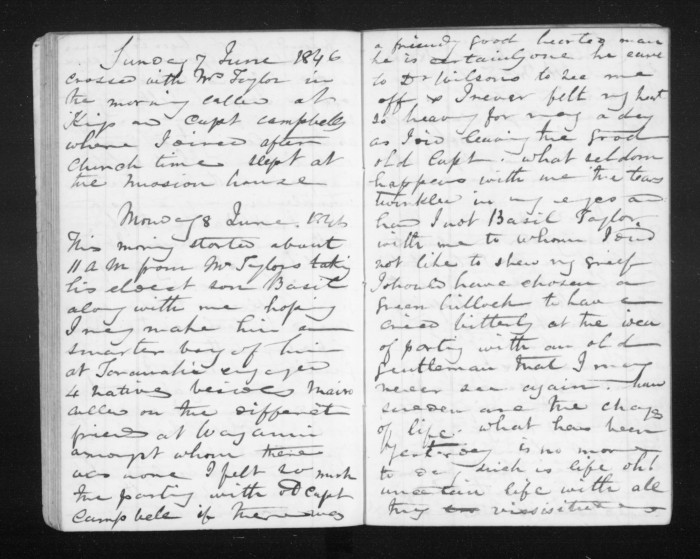 Sunday 7 June 1846
crossed with Mr Taylor in
the morning called at
Kings and Capt Campbells
where I dined after
Church time slept at
the Mission house
Monday 8 June. 1846
This moring started about
11 AM from Mr Taylors taking
his eldest son Basil
along with me hoping
I may make him a
smarter boy of him
at Taranaki engaged
4 natives besides
called on the different
friends at Wanganui
amongst whom there
was none I felt so much
the parting with as Capt
Campbele if there was
a friendly good hearted man
he is certainly one he came
to Dr Wilsons to see me
off & I never felt my heart
so heavy for many a day
as I did leaving the good
old Capt. what seldom
happens with me the tears
twinkled in my eyes and
had I not Basil Taylor
with me to whom I did
not like to shew my greif
I should have chosen a
green hillock to have a
cried bitterly at the idea
of parting with an old
Gentleman that I may
never see again. how
sudden are the changes
of life. what has been
yesterday is no more
to day, such is life oh!
uncertain life with all
thy vissisitudes